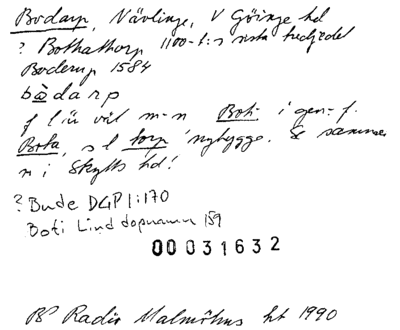 Bodarp, Nävlinge, V Göinge hd
? Bothathorp 1100-t:s sista tredjedel
Boderup 1584
bòdarp
f l ä väl m-n Boti i gen.-f.
Bota, s l torp 'nybygge. Se samma
n i Skytts hd!
? Bude DGP 1:170
Boti Lind dopnamn 159
00031632
BP Radio Malmöhus ht 1990